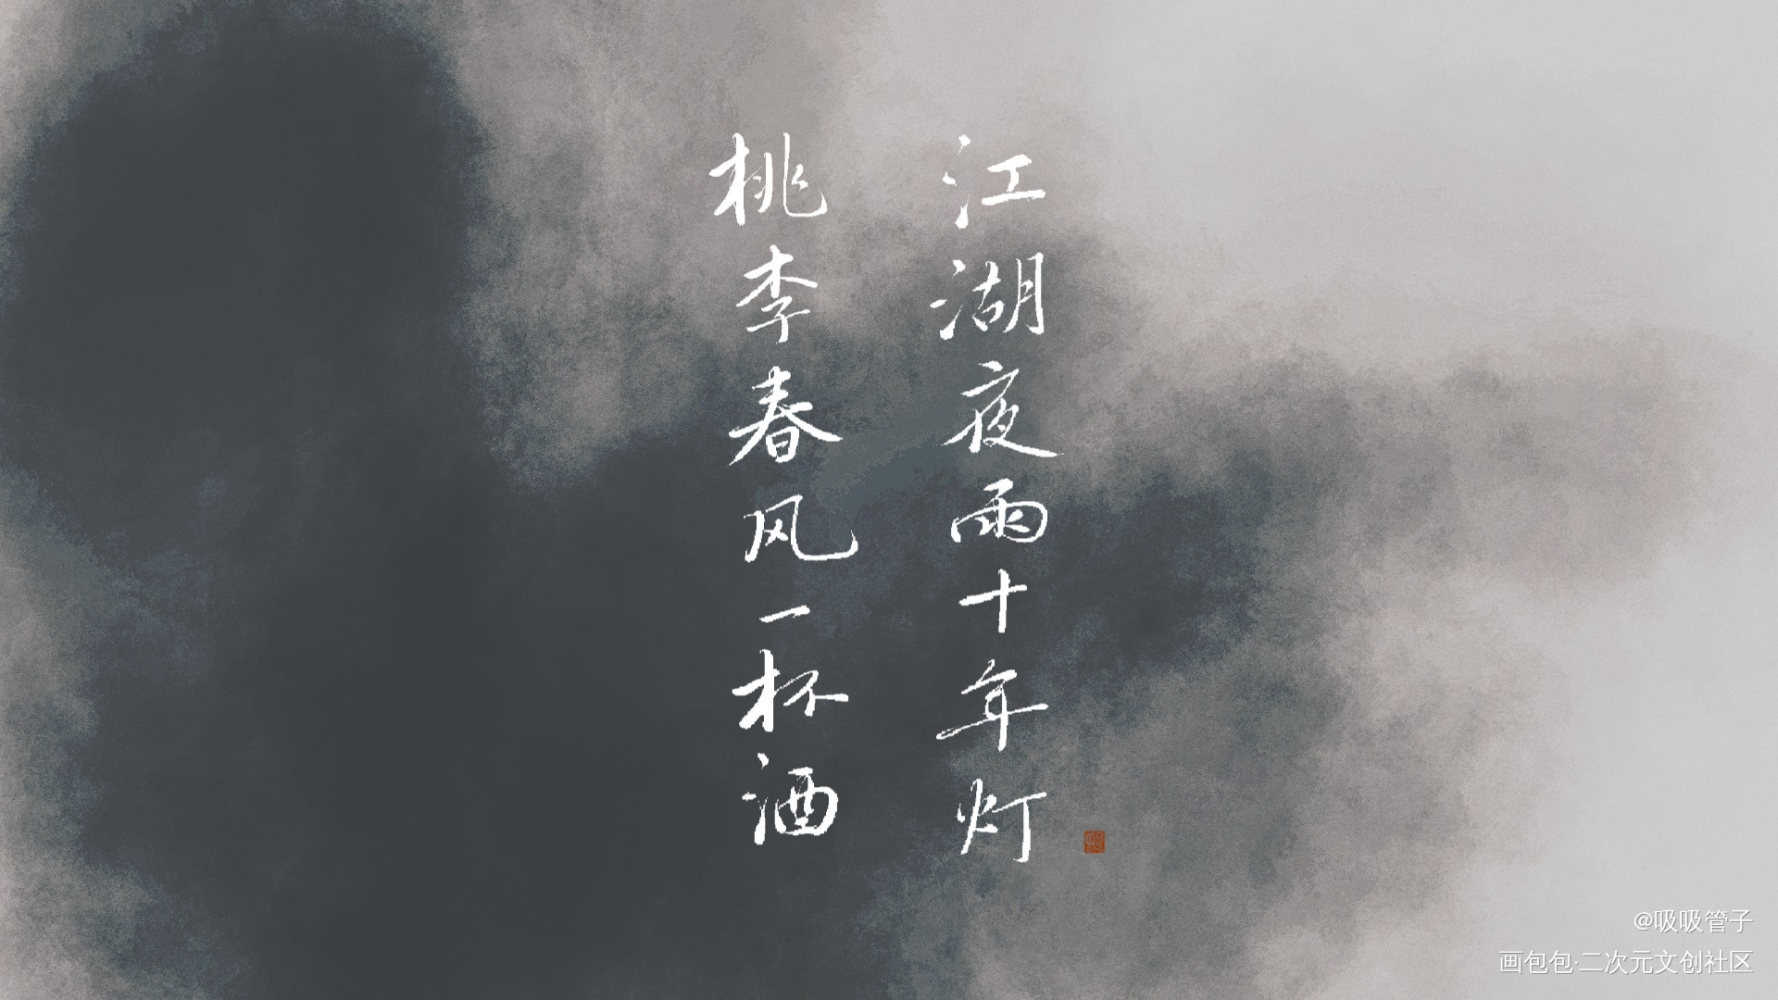 桃李春风一杯酒
江湖夜雨十年灯
@吸吸管子
画包包·二次元文创社区